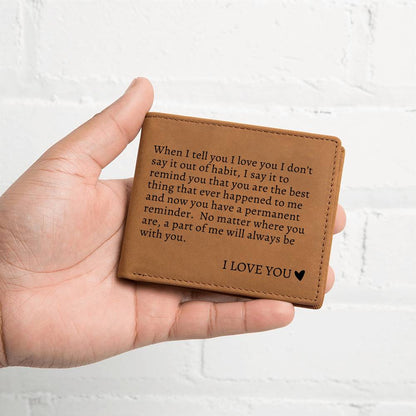 When I tell you I love you I don't
say it out of habit, I say it to
remind you that you are the best
thing that ever happened to me
and now you have a permanent
reminder. No matter where you
are, a part of me will always be
with you.
I LOVE YOU